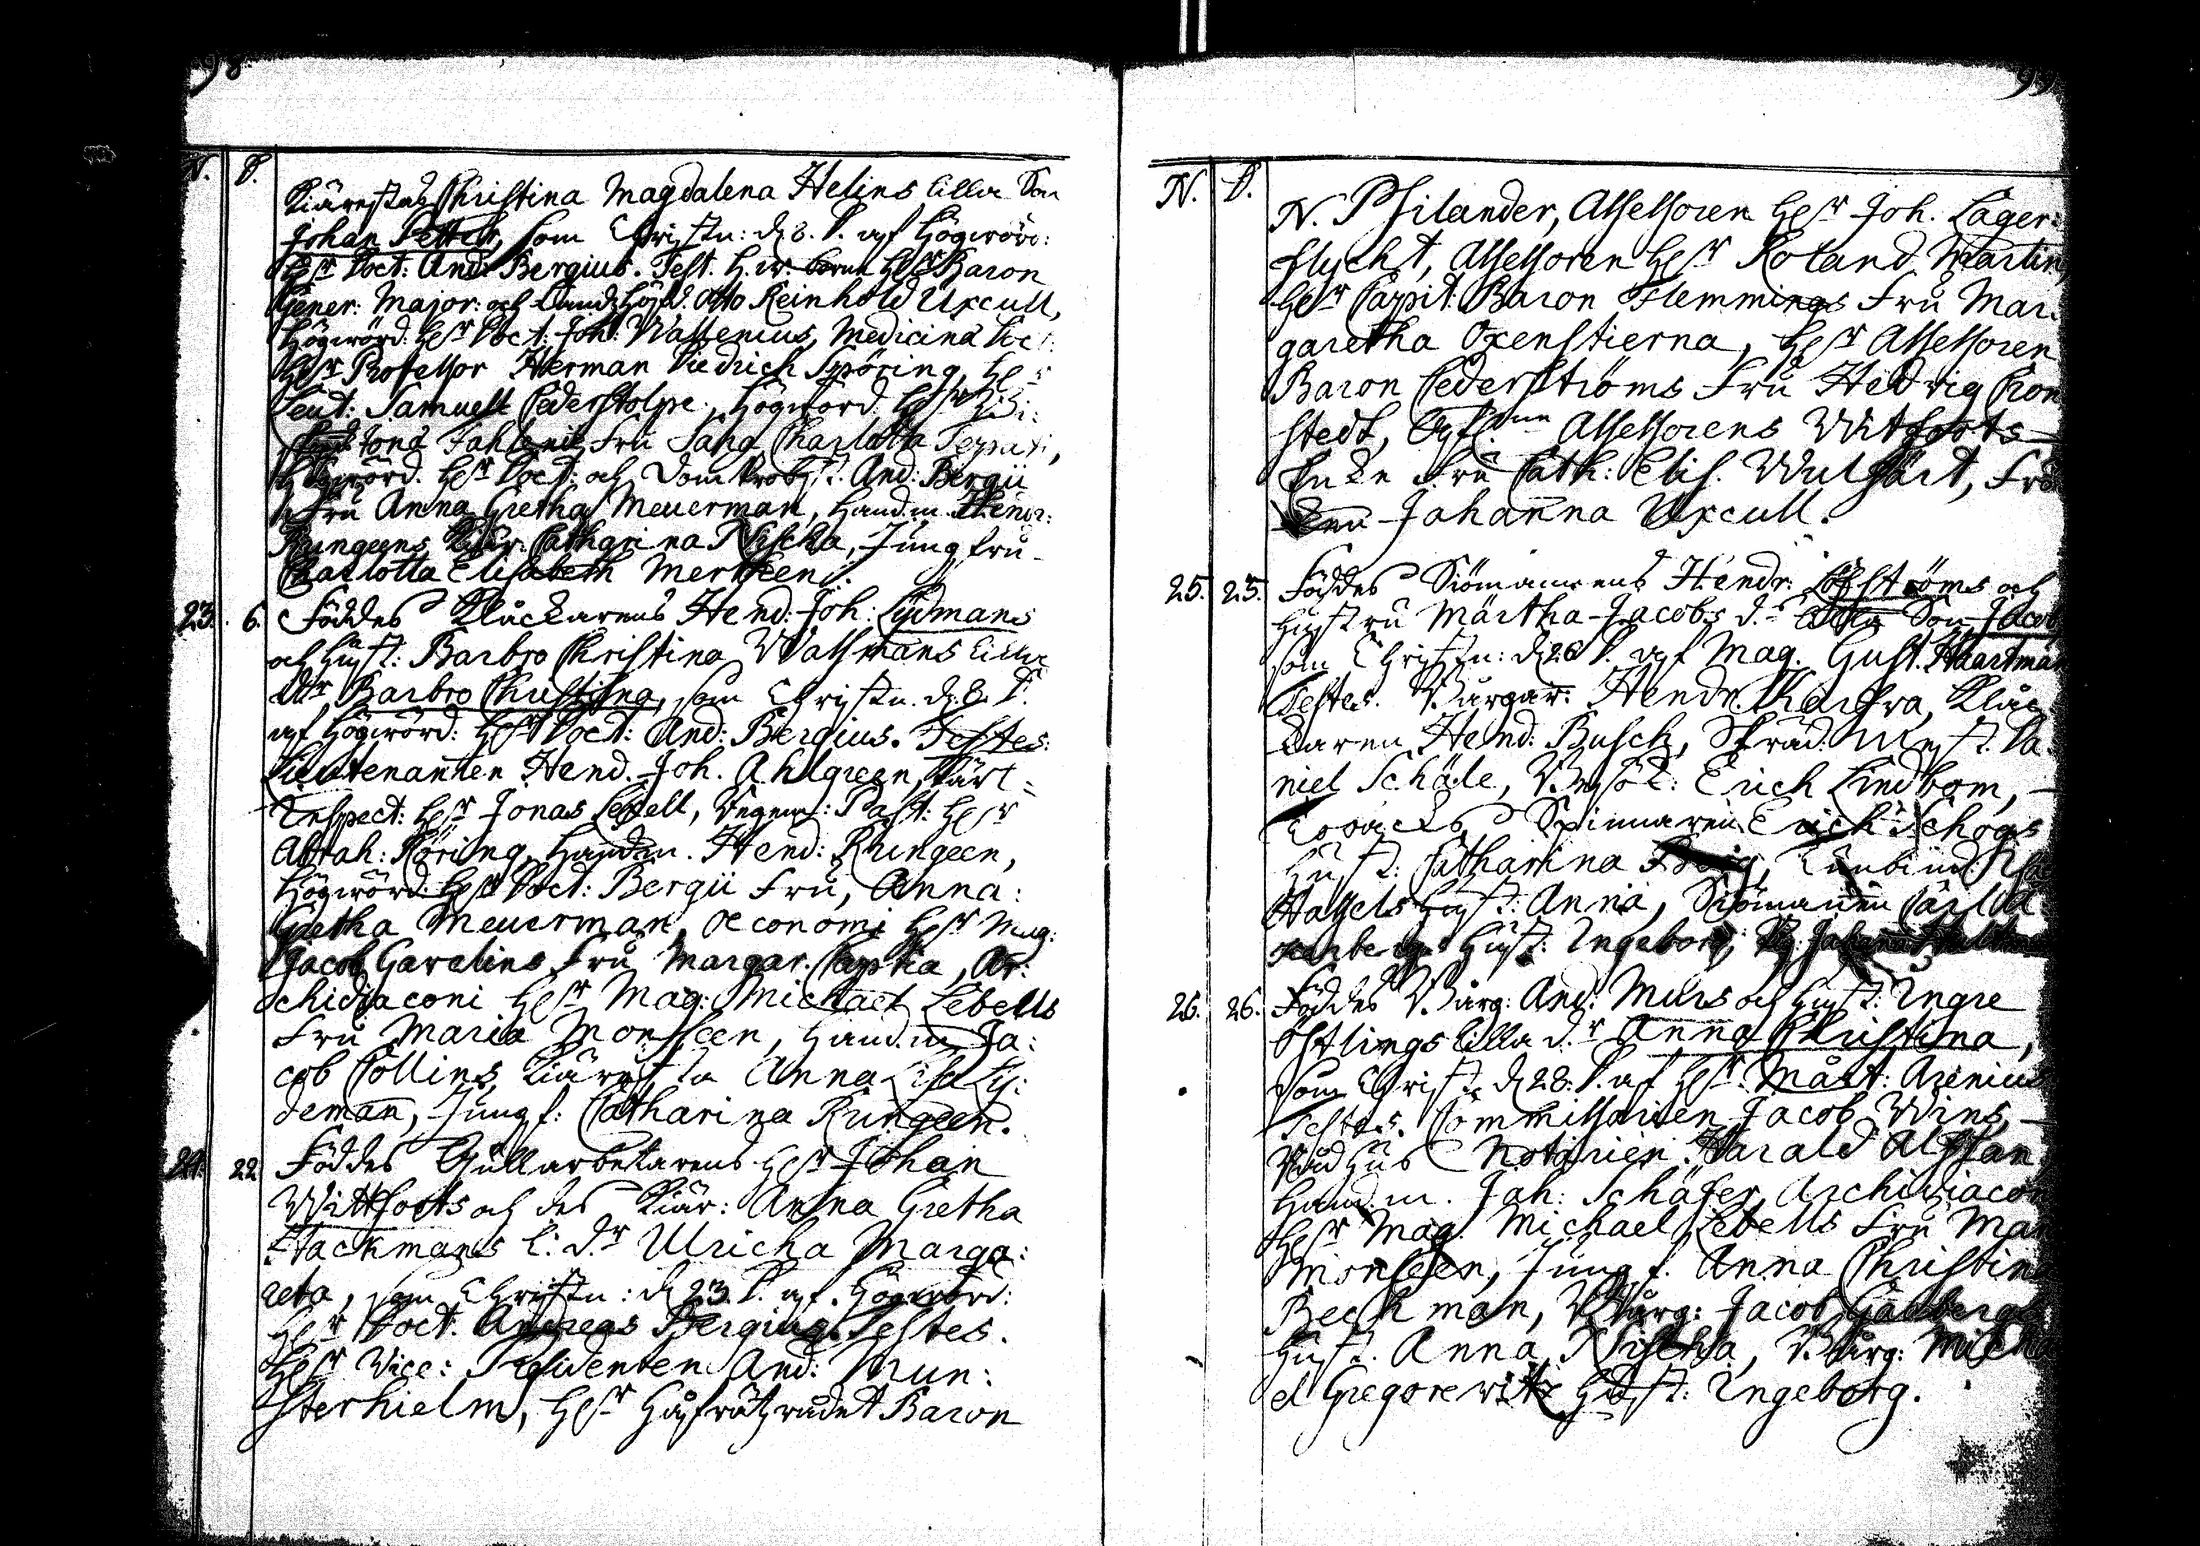 98
N. D.
Kiärestas Christina Magdalena Helins lilla Son
Johan Petter, som Christn: d. 8. D. af Högwörd:
Hesr Doct: And: Bergius. Test. H. w. borne Hesr Baron
Gener: Major: och Landzhöfd. Otto Reinhold Uxcull,
Högwörd. Hesr Doct: Joh: Wallenius, Medicinæ Doct:
Hesr Professor Herman Diedrich Spöring, Hesr
Leut: Samuell Cederstolpe, Högwörd. Hesr
Jonæ Fahlenii Fru Sara Charlotta
Högwörd. Hesr Doct: och Domprobst. And: Bergii
Fru Anna Gretha Meuerman, Handm. Henr:
Rungeens Kiär. Catharina Mischa, Jungfru
Charlotta Elisabeth Mertheen.
23. 6. Föddes Klåckarens Hend: Joh: Lydmans
och Hust: Barbro Christina Wassmans lilla
dtr Barbro Christina, som Christn. d. 8. D.
af Högwörd: Hesr Doct: And: Bergius. Testes:
Lieutenanten Hend. Joh. Ahlgreen,
Inspect: Hesr Jonas Lebell, Regem: Past: Hesr
Abrah: Röring, Handm. Hend: Rungeen,
Högwörd: Hesr Doct: Bergii Fru, Anna:
Gretha Meuerman, Oeconomi Hesr Mag:
Jacob Gavelins Fru Margar. Captia, Ar:
chidiaconi Hesr Mag: Michael Lebells
Fru Maria Monseen, Handm. Ja:
cob Collins Kiäresta Anna Lisa Ly:
deman, Jungf: Catharina Rungeen.
24. 22 Föddes Gullarbetarens Hesr Johan
Wittfoots och des Kiär: Anna Gretha
Hackmans l: dr Ulricha Marga:
reta, som Christn: d. 23. D. af Högwörd:
Hesr Doct. Andreas Bergius. Testes.
Hesr Vice: Presidenten And: Mun:
sterhielm, Hesr Håfrätzrådet Baron
99
N. D.
N. Psilander, Assessoren Hesr Joh. Lager:
flycht, Assessoren Hesr Roland Martin,
Hesr Capit: Baron Flemmings Fru Mar:
garetha Oxenstierna, Hesr Assessoren
Baron Cederströms Fru Hedvig Cron
stedt, Assessorens Witfoots
Enka Fru Cath: Elis. Wulfärt, Frö
ken Johanna Uxcull.
25. 25. Föddes Siömannens Hendr: Löfströms och
Hustru Märtha Jacobs dr lilla Son Jacob,
som Christn: d. 26 D. af Mag. Gust. Haartman
Testes. Bårgar: Hendr. Karfra, Klåc
karen Hend: Busch, Skräd. Mest. Da:
niel Schäle, Erich Lindbom,
Spinnaren Erich Schogs
Hust: Catharina
Hassels Hust: Anna, Siömannen
Hust: Ingeborg,
26. 26. Föddes Bårg: And: Murs och Hust: Ingre
Östlings lilla dr Anna Christina,
som Christn d. 28. D. af Hesr Mårt: Arenius
Testes. Commissarien Jacob Wins,
Rådhus Notarien Harald Alftan,
Handm. Joh: Schäfer, Archidiacon
Hesr Mag. Michael Lebells Fru Mar
Monseen, Jungf. Anna Christina
Beckman, Bårg: Jacob
Hust. Anna Mischa, Bårg: Micha
el Gregorewitz Hust: Ingeborg.